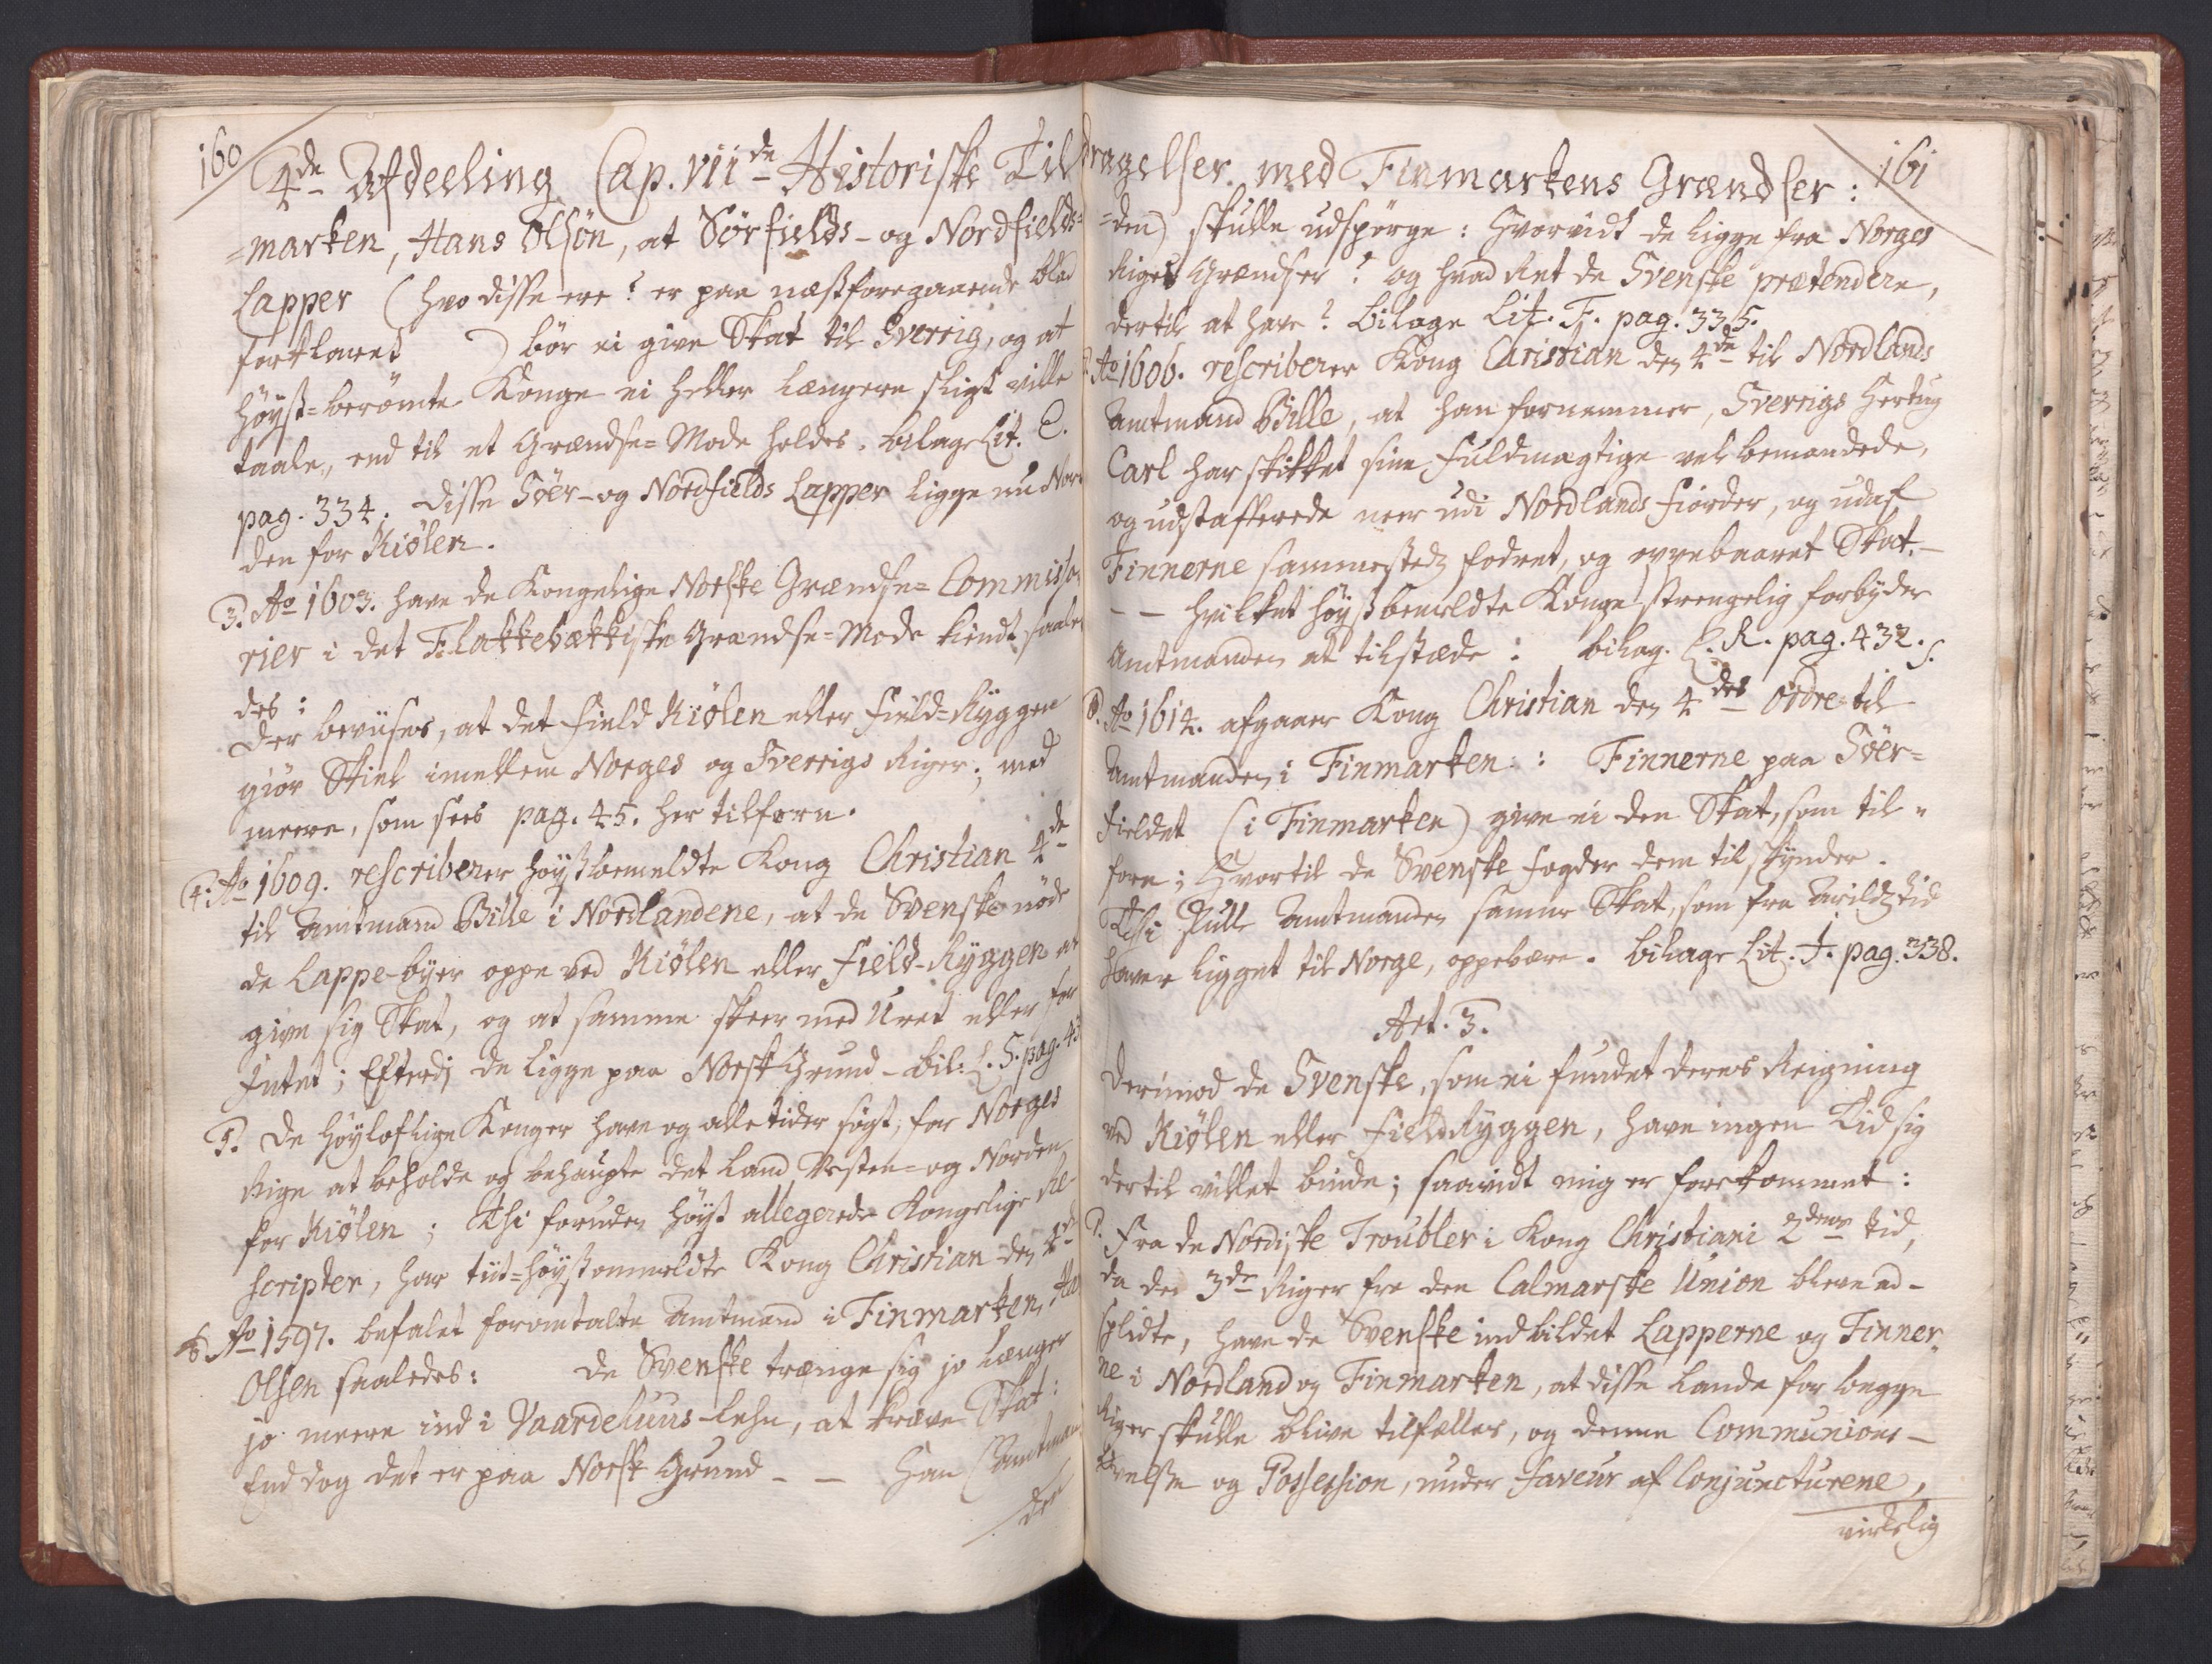 160
4de Afdeeling Cap. VIIde Historiske Til
=marken, Hans Olsön, at Sörfields- og Nordfields=
Lapper (hvo disse ere? er paa næstforegaaende blad
forklaret) bör ei give Skat til Sverrig, og at
höyst=berömte Konge ei heller længere sligt ville
taale, end til et Grændse=Mode holdes. bilage Lit. E.
pag. 334. Disse Söer- og Nordfields Lapper ligge nu Nor
den for Kiölen.
3. Ao 1603. have de Kongelige Norske Grændse= Commissa
rier i det Flakkebækkiske Grændse=Mode kiendt saale
des:
Der beviises, at det field Kiölen eller field=Ryggen
giör Skiel imellem Norges og Sverrigs Riger; med
meere, som sees pag. 45. her tilforn.
4. Ao 1609. rescriberer höystbemeldte Kong Christian 4de
til Amtmand Bille i Nordlandene, at de Svenske nöde
de Lappe-byer oppe ved Kiölen eller Field-Ryggen at
give sig Skat, og at samme skeer med Uret eller for
Intet; Efterdj de ligge paa Norsk Grund - bil: L. S. pag. 43
5. De höyloflige Konger have og alle tider sögt, for Norges
Rige at beholde og behaupte det land Vesten= og Norden
for Kiölen; Thi foruden höyst allegerede Kongelige Re-
scripter, har tiit=höystommeldte Kong Christian den 4de
6. Ao 1597. befalet foromtalte Amtmand i Finmarken, Hans
Olsen saaledes: De Svenske trænge sig jo længer
jo meere ind i Vaardehuus-lehn, at kræve Skat;
End dog det er paa Norsk Grund - - Han (Amtman
den
dragelser med Finmarkens Grændser: 161
=den) skulle udspörge: Hvorvidt de ligge fra Norges
Riges Grændser? og hvad Ret de Svenske prætendere,
dertil at have? bilage Lit. F. pag. 335.
Ao 1606. rescriberer Kong Christian den 4de til Nordlands
Amtmand Bille, at han fornemmer, Sverrigs Hertug
Carl har skikket sine fuldmægtige vel bemandede,
og udstafferede neer udi Nordlands fiorder, og udaf
Finnerne sammestedz fodret, og oppebaaret Skat. -
- - Hvilket höystbemeldte Konge strengelig forbyder
Amtmanden at tilstæde: bilag. L. R. pag. 432. S.
8. Ao 1614. afgaaer Kong Christian den 4des Ordre til
Amtmanden i Finmarken: Finnerne paa Söer=
fieldet (i Finmarken) give ei den Skat, som til=
forn; Hvortil de Svenske fogder dem tilskynder.
Thi skulle Amtmanden samme Skat, som fra Arildz tid
haver ligget til Norge, oppebære. bilage Lit. I. pag. 338.
Art. 3.
Derimod de Svenske, som ei fundet deres Reigning
ved Kiölen eller fieldRyggen, have ingen Tid sig
dertil villet binde; saavidt mig er forekommet:
1. Fra de Nordiske Troubler i Kong Christiani 2dens tid,
da de 3de Riger fra den Calmarske Union bleve ad-
splidte, have de Svenske indbildet Lapperne og Finner=
ne i Nordland og Finmarken, at disse lande for begge
Riger skulle blive tilfælles, og denne Communions-
Övelse og Possession, under faveur af Conjuncturene,
virkelig